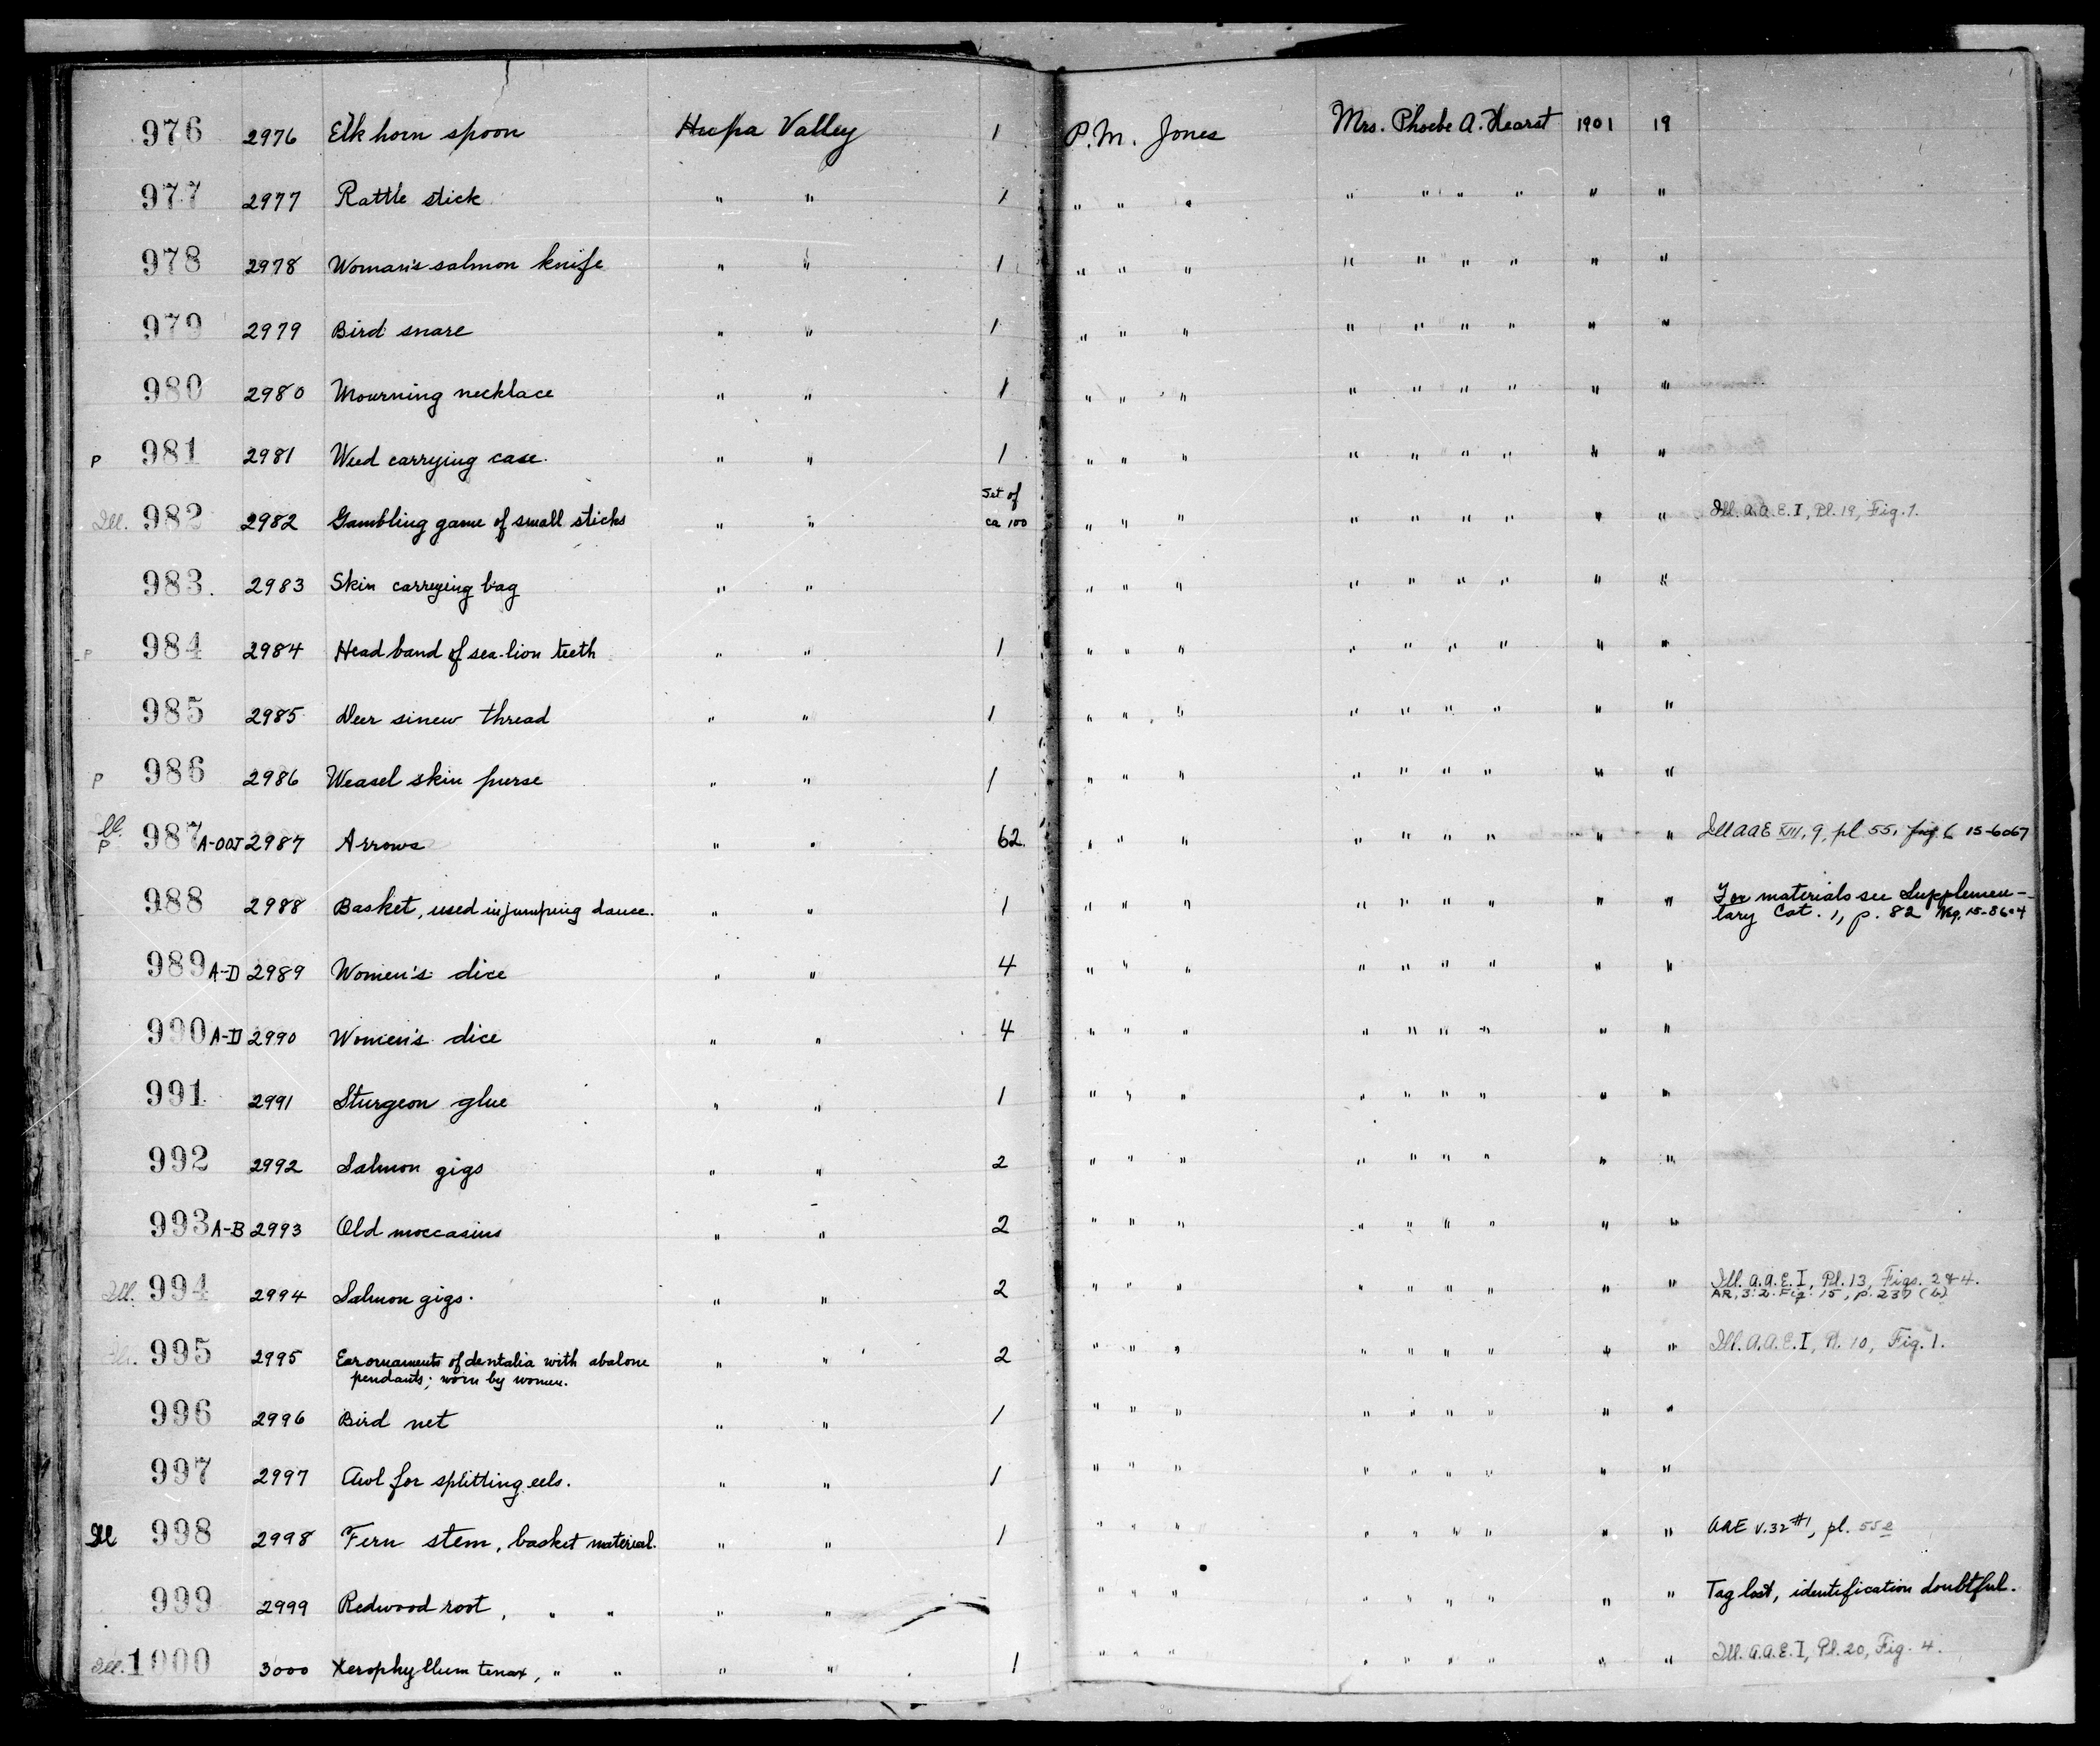 976 2976 Elk horn spoon Hupa Valley 1 P. M. Jones Mrs. Phoebe A. Hearst 1901 19
977 2977 Rattle stick " " 1 " " " " " " " " "
978 2978 Woman's salmon knife " " 1 " " " " " " " " "
979 2979 Bird snare " " 1 " " " " " " " " "
980 2980 Mourning necklace " " 1 " " " " " " " " "
P 981 2981 Weed carrying case. " " 1 " " " " " " " " "
Ill. 982 2982 Gambling game of small sticks " " Set of ca 100 " " " " " " " " " Ill. A.A.E. I, Pl. 19, Fig. 1.
983. 2983 Skin carrying bag " " " " " " " " " " "
P 984 2984 Head band of sea-lion teeth " " 1 " " " " " " " " "
985 2985 Deer sinew thread " " 1 " " " " " " " " "
P 986 2986 Weasel skin purse " " 1 " " " " " " " " "
Ill. P 987 A-OOJ 2987 Arrows " " 62 " " " " " " " " " Ill AAE XIII, 9, pl 55, fig. 6 15-6067
988 2988 Basket, used in jumping dance. " " 1 " " " " " " " " " For materials see Supplemen-
tary Cat. 1, p. 82 Neg. 15-8604
989 A-D 2989 Women's dice " " 4 " " " " " " " " "
990 A-D 2990 Women's dice " " 4 " " " " " " " " "
991 2991 Sturgeon glue " " 1 " " " " " " " " "
992 2992 Salmon gigs " " 2 " " " " " " " " "
993 A-B 2993 Old moccasins " " 2 " " " " " " " " "
Ill. 994 2994 Salmon gigs. " " 2 " " " " " " " " " Ill. A.A.E. I, Pl. 13, Figs. 2 & 4.
AR, 3:2. Fig. 15, p. 237 (b)
Ill. 995 2995 Ear ornaments of dentalia with abalone " " 2 " " " " " " " " " Ill. A.A.E. I, Pl. 10, Fig. 1.
pendants; worn by women.
996 2996 Bird net " " 1 " " " " " " " " "
997 2997 Awl for splitting eels. " " 1 " " " " " " " " "
Ill 998 2998 Fern stem, basket material. " " 1 " " " " " " " " " AAE v.32 #1, pl. 55e
999 2999 Redwood root, " " " " " " " " " " " " " Tag lost, identification doubtful.
Ill. 1000 3000 Xerophyllum tenax, " " " " 1 " " " " " " " " " Ill. A.A.E. I, Pl. 20, Fig. 4.